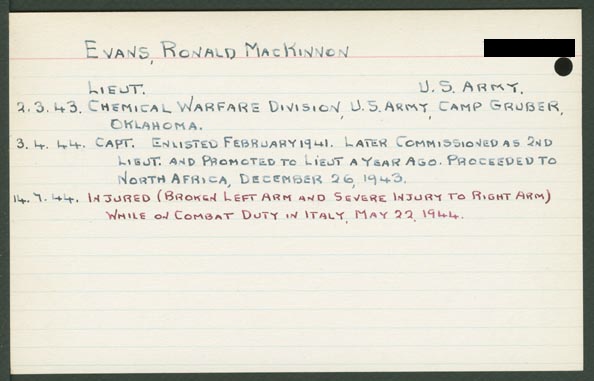 EVANS, RONALD MACKINNON
LIEUT. U.S. ARMY.
2.3.43. CHEMICAL WARFARE DIVISION, U.S. ARMY, CAMP GRUBER,
OKLAHOMA.
3.4.44. CAPT. ENLISTED FEBRUARY 1941. LATER COMMISSIONED AS 2ND
LIEUT. AND PROMOTED TO LIEUT A YEAR AGO. PROCEEDED TO
NORTH AFRICA, DECEMBER 26, 1943.
14.7.44. INJURED (BROKEN LEFT ARM AND SEVERE INJURY TO RIGHT ARM)
WHILE ON COMBAT DUTY IN ITALY, MAY 22, 1944.